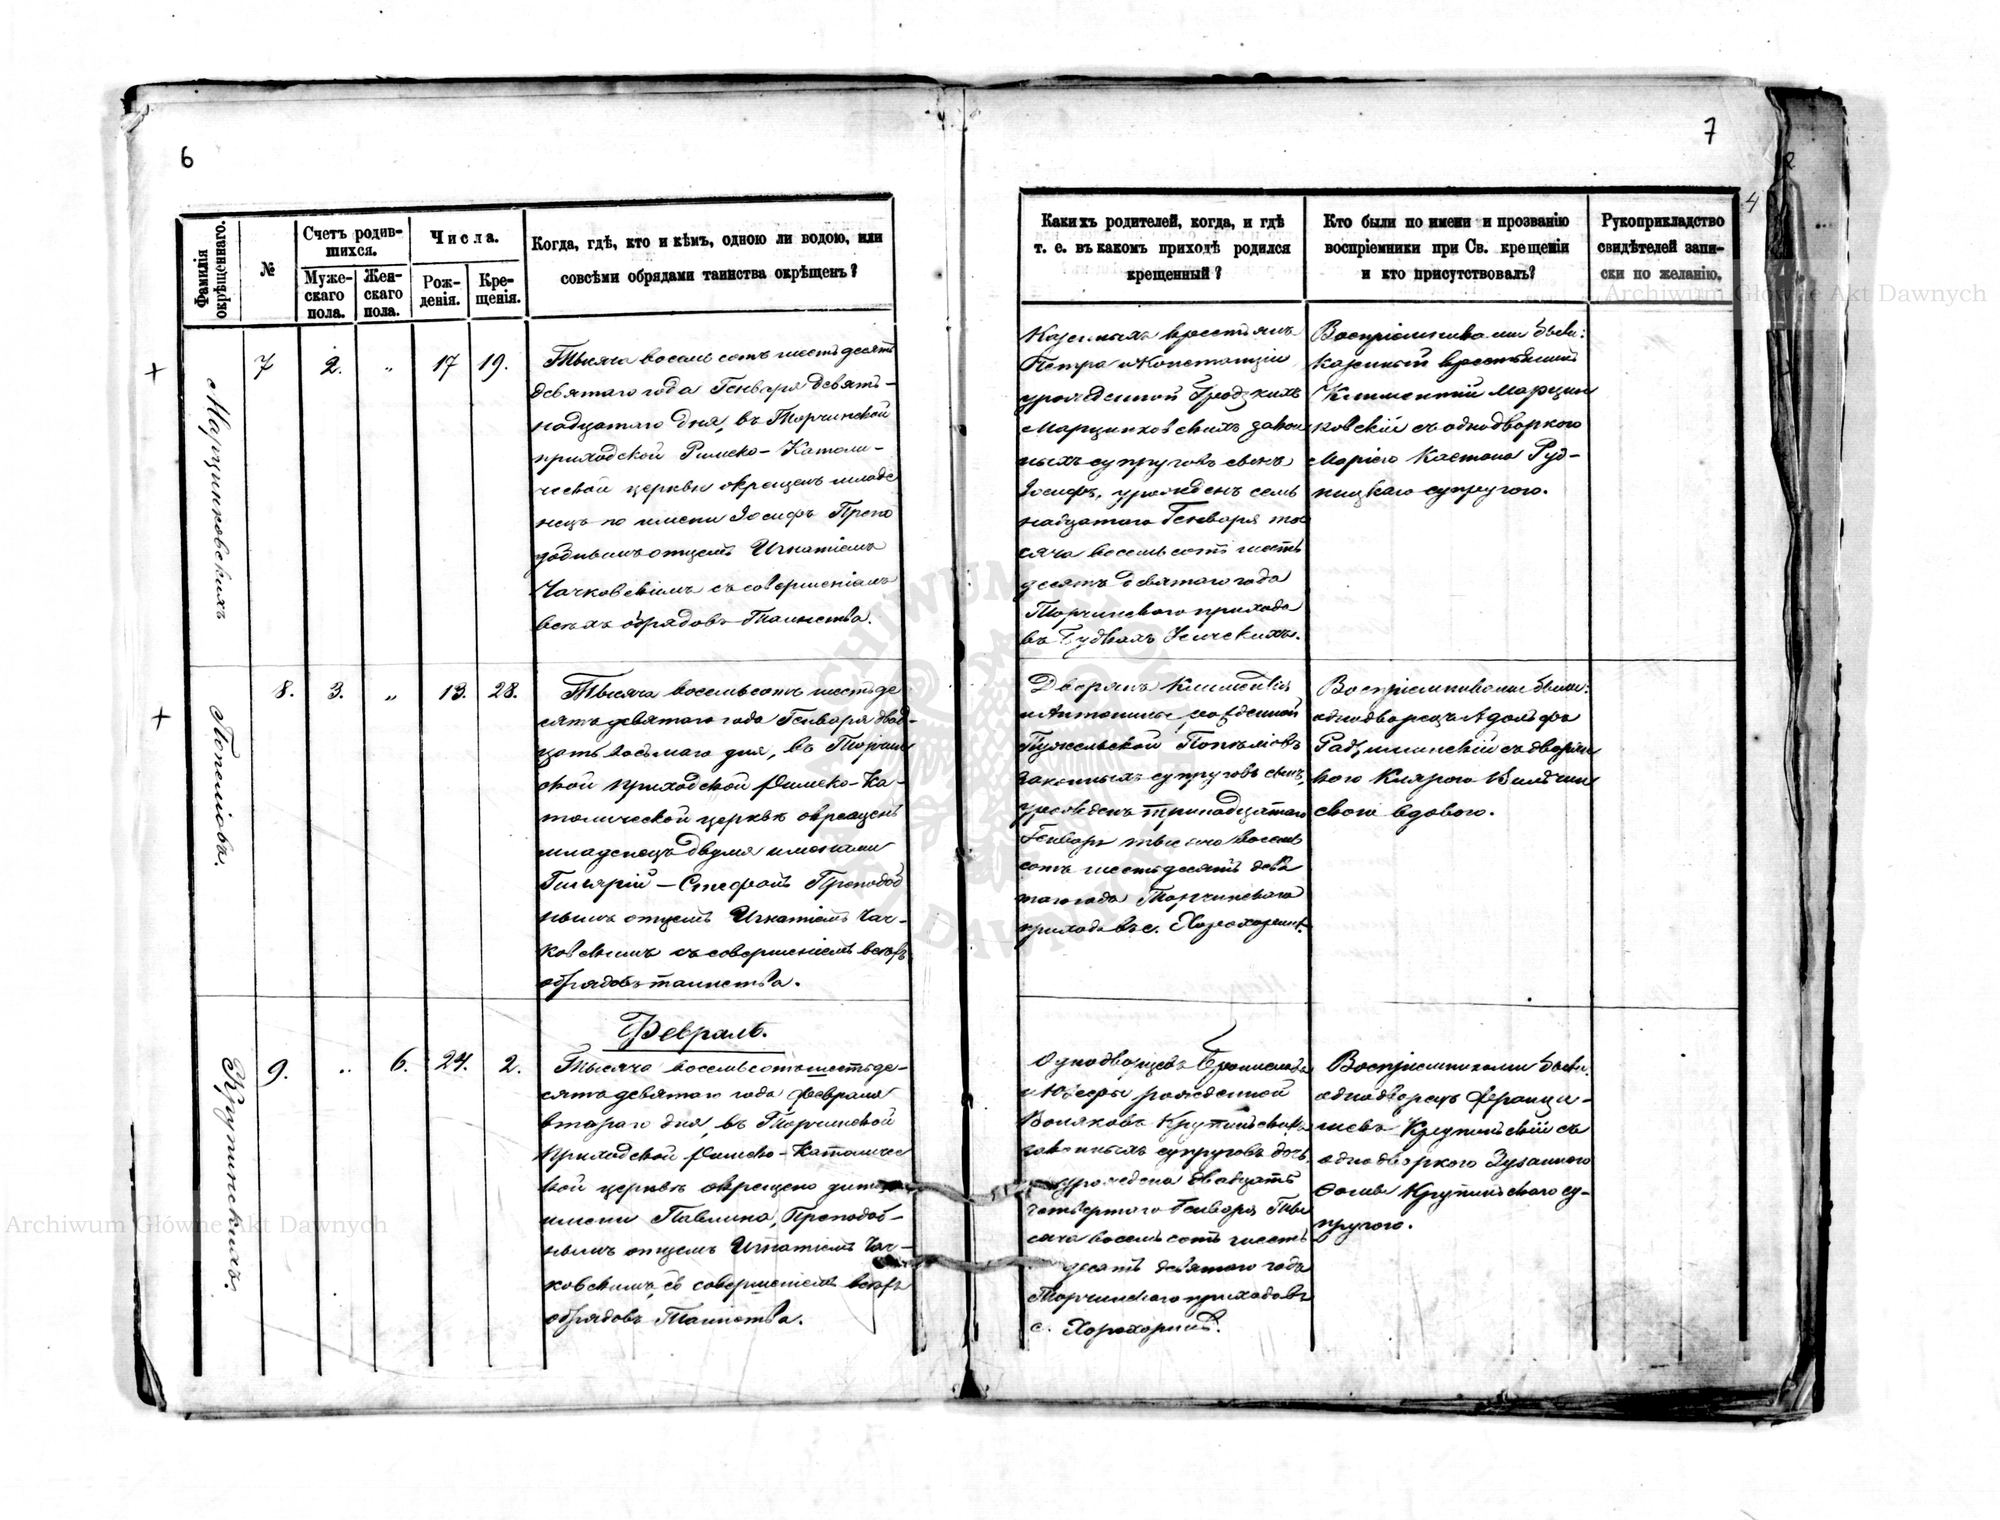 6
Фамилія окрѣщеннаго.
№
Счетъ родив-
шихся.
Муже-
скаго
пола.
Жен-
скаго
пола.
Числа.
Рож-
денія.
Кре-
щенія.
Когда, гдѣ, кто и кѣмъ, одною ли водою, или
совсѣми обрядами таинства окрѣщенъ?
Марцинковскихъ
7
2.
"
17
19.
Тысяча восемь сотъ шестьдесятъ
девятаго года Генваря девят-
надцатаго дня, въ Торчинской
приходской Римско-Католи-
ческой церкви окрещенъ младе
нецъ по имени Іосифъ Препо
добнымъ отцемъ Игнатіемъ
Чачковскимъ съ совершеніемъ
всѣхъ обрядовъ Таинства.
Попеліовъ.
8.
3.
"
13.
28.
Тысяча восемьсотъ шестьде
сятъ девятаго года Генваря двад-
цать восьмаго дня, въ Торчин
ской приходской Римско-Ка-
толической церкви окрещенъ
младенецъ двумя именами
Гилярій-Стефанъ Преподоб
нымъ отцемъ Игнатіемъ Чач-
ковскимъ съ совершеніемъ всѣхъ
обрядовъ таинства.
Февраль.
Крупинскихъ.
9.
"
6.
24.
2.
Тысяча восемьсотъ шестьде-
сятъ девятаго года Февраля
втораго дня, въ Торчинской
приходской Римско-Католичес
кой церкви окрещено дитя
имени Павлина, Преподоб-
нымъ отцемъ Игнатіемъ Чач-
ковскимъ, съ совершеніемъ всѣхъ
обрядовъ Таинства.
7
4
Какихъ родителей, когда, и гдѣ
т. е. въ какомъ приходѣ родился
крещенный?
Кто были по имени и прозванію
воспріемники при Св. крещеніи
и кто присутствовалъ?
Рукоприкладство
свидѣтелей запи-
ски по желанію.
Казенныхъ крестьянъ
Петра и Констанціи
урожденной Гродзкихъ
Марцинковскихъ закон
ныхъ супруговъ сынъ
Іосифъ, урожденъ семь
надцатаго Генваря ты
сяча восемьсотъ шесть
десятъ девятаго года
Торчинскаго прихода
въ Будкахъ Усичскихъ.
Воспріемниками были:
казенный крестьянинъ
Климентій Марцин
ковскій съ однодворкою
Маріею Каетана Руд-
ницкаго супругою.
Дворянъ Климентія
и Антонины рожденной
Попеліовъ
законныхъ супруговъ сынъ,
урожденъ тринадцатаго
Генваря тысяча восемь
сотъ шестьдесятъ девя
таго года Торчинскаго
прихода въ с. Хорохоринѣ.
Воспріемниками были:
однодворецъ Адольфъ
Радзиминскій съ дворян
кою Клярою Вильчин
скою вдовою.
Однодворцевъ Бронислава
и Юзефы рожденной
Крупинскихъ
законныхъ супруговъ дочь,
урождена двадцать
четвертаго Генваря Ты
сяча восемьсотъ шесть
десятъ девятаго года
Торчинскаго прихода въ
с. Хорохоринѣ.
Воспріемниками были:
однодворецъ Франци-
шекъ Крупинскій съ
однодворкою Зузанною
Фомы Крупинскаго су-
пругою.
Archiwum Główne Akt Dawnych
Archiwum Główne Akt Dawnych